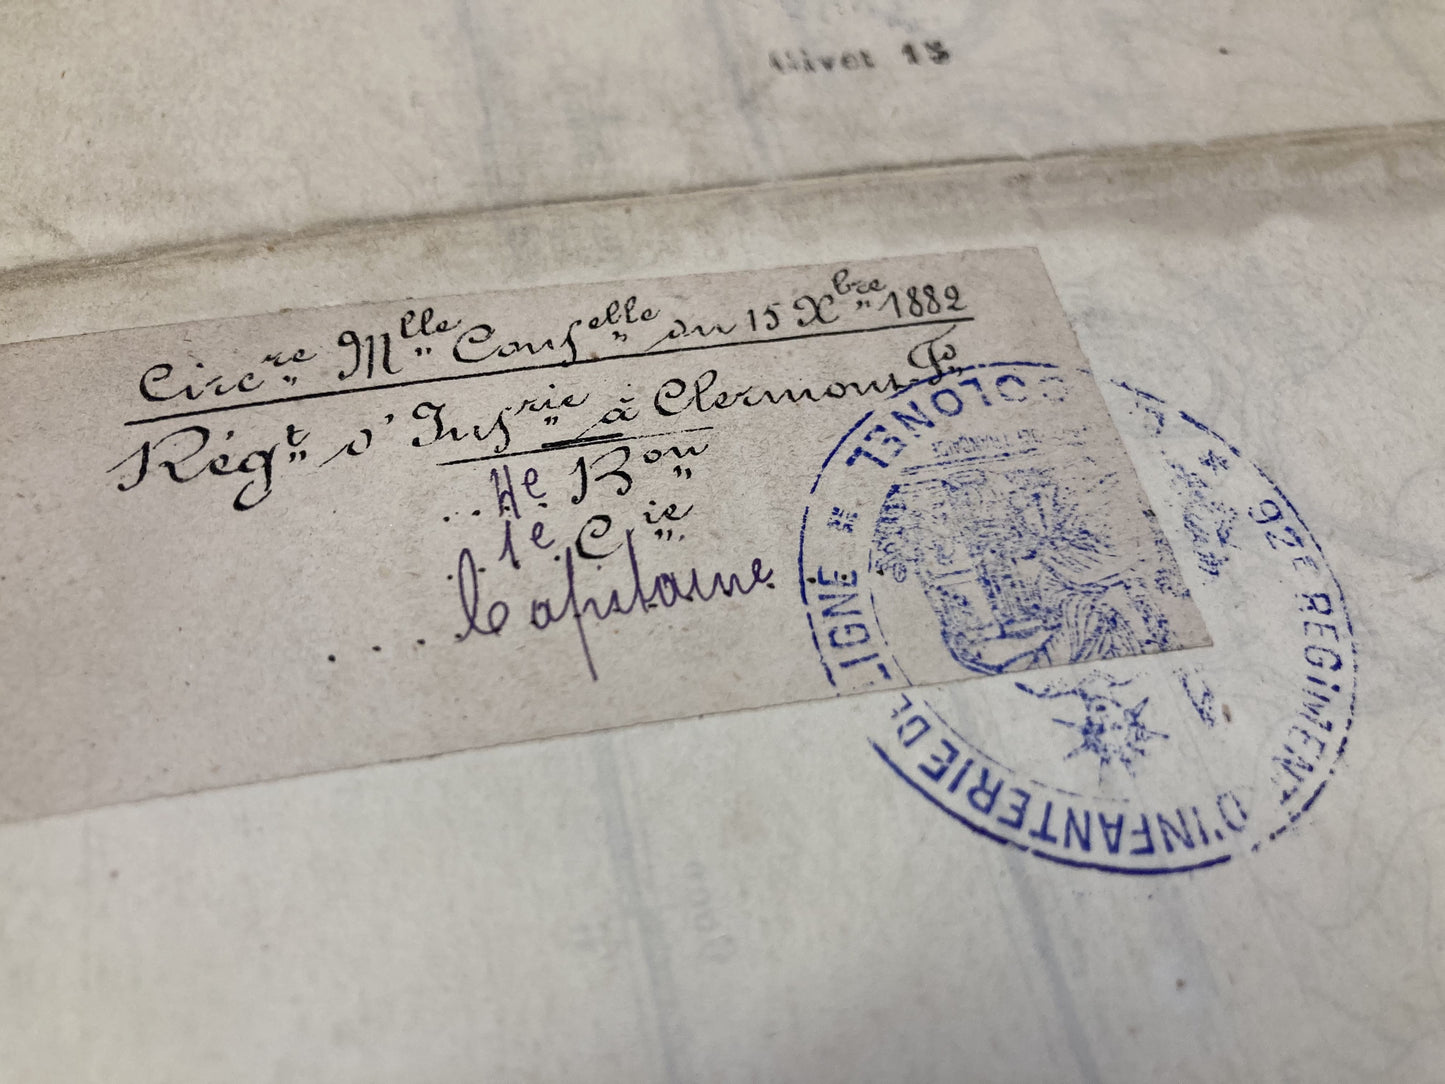 Givet 15
Circre Mlle Confelle du 15 Xbre 1882
Régt d'Infrie à Clermont Fd
4e Bon
1e Cie
Capitaine
92E REGIMENT D'INFANTERIE DE LIGNE * COLONEL *